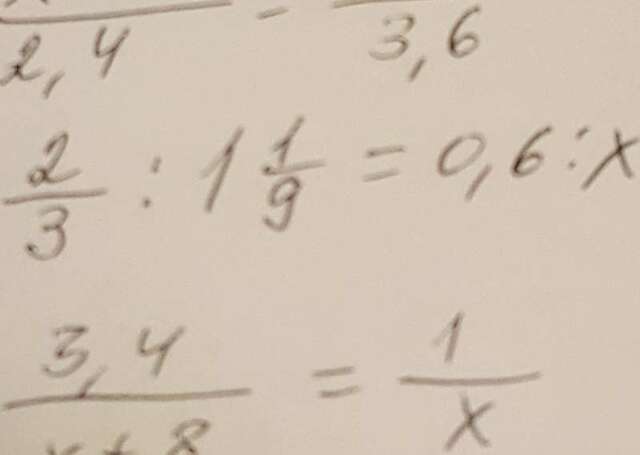 2,4 - 3,6
2/3 : 1 1/9 = 0,6 : x
3,4 / x + 8 = 1/x